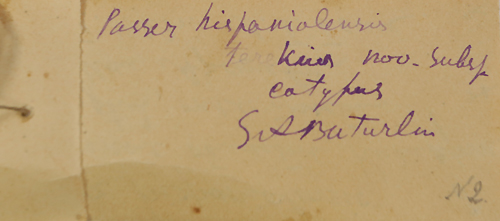 Passer hispaniolensis
kius nov. subsp
cotypus
S A Buturlin
N2